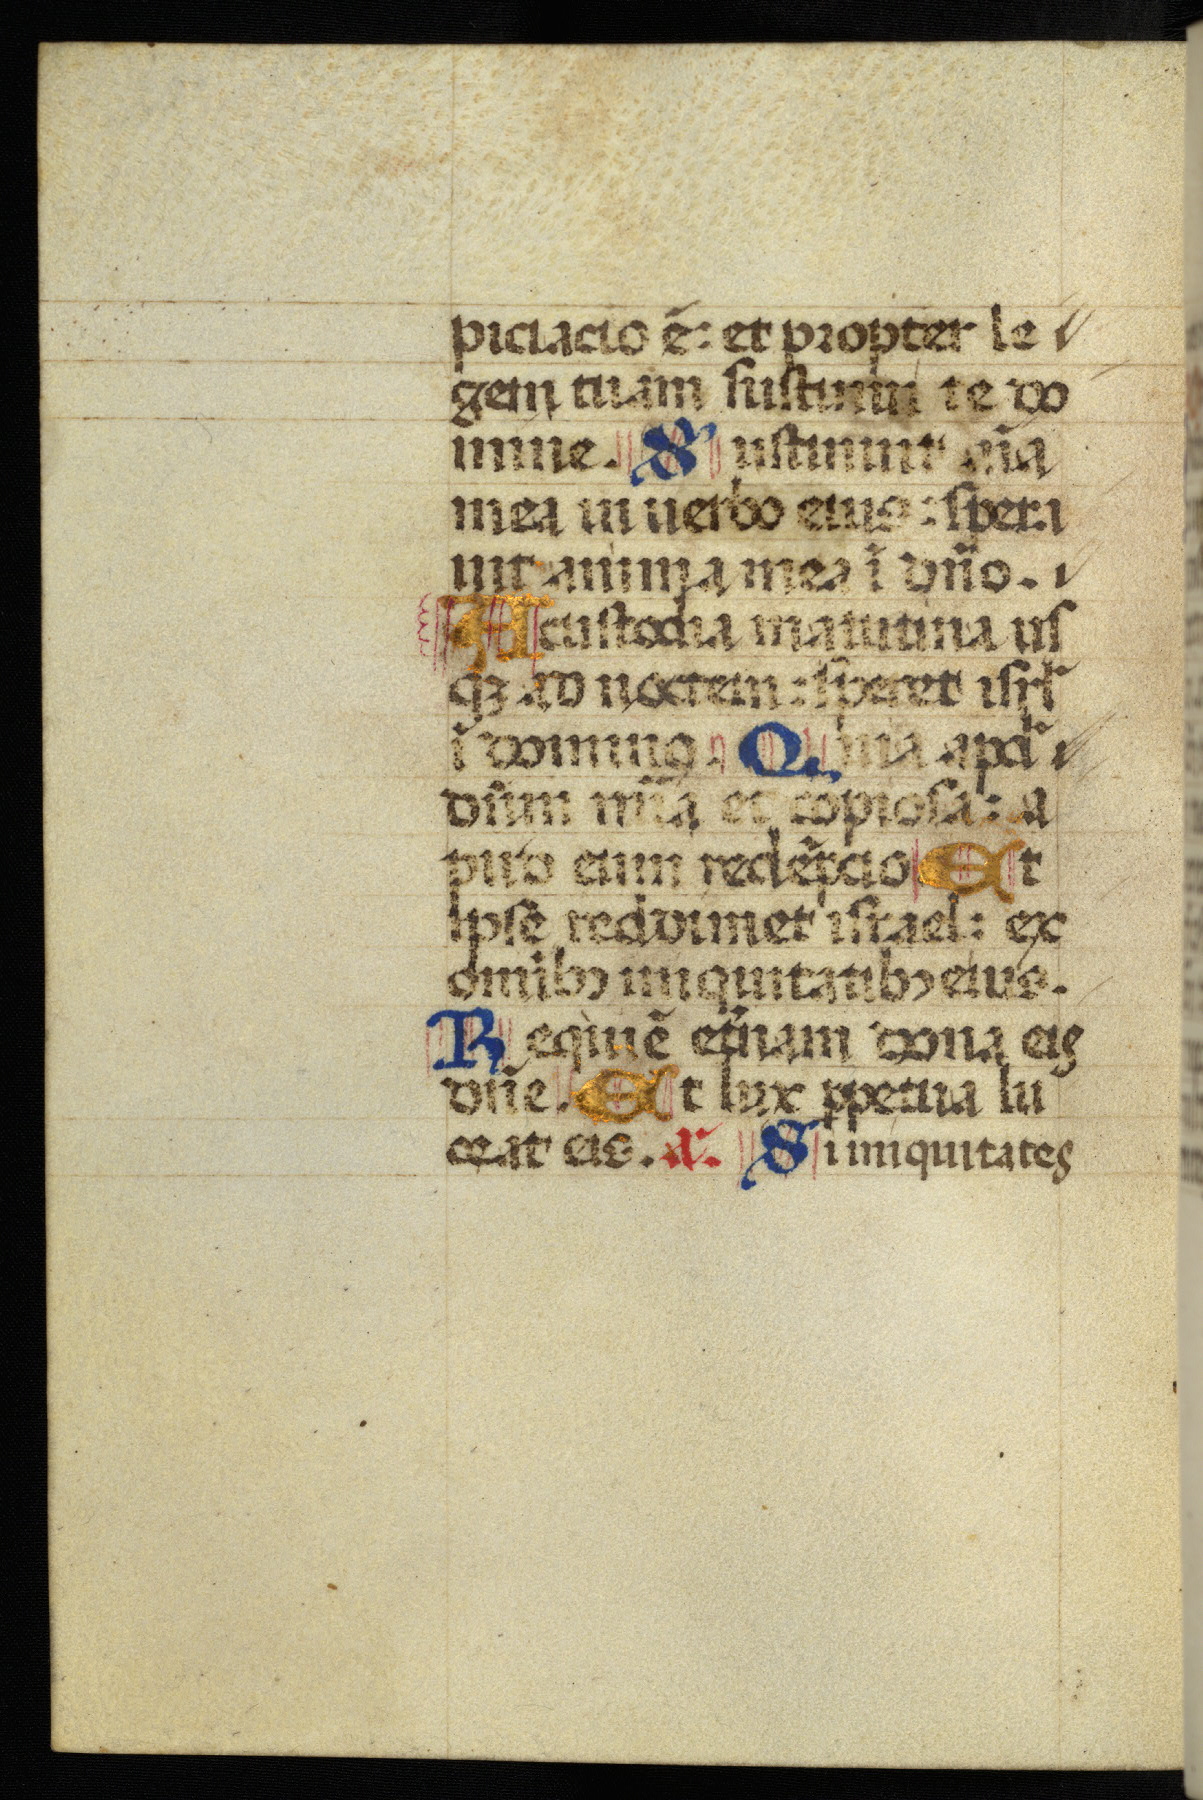 piciacio ē: et propter le
gem tuam sustinui te do
mine. Sustinuit aīa
mea in uerbo eius: spera
uit anima mea ī dn̄o.
A custodia matutina us
qȝ ad noctem: speret isrl̄
ī domino. Quia apd̄
dūm mīa et copiosa: a
pud eum redēpcio Et
ipse redimet israel: ex
omībꝯ iniquitatibꝯ eius.
Requiē et̄nam dona eis
dn̄e. Et lux ꝑpetua lu
ceat eis. a. Si iniquitates